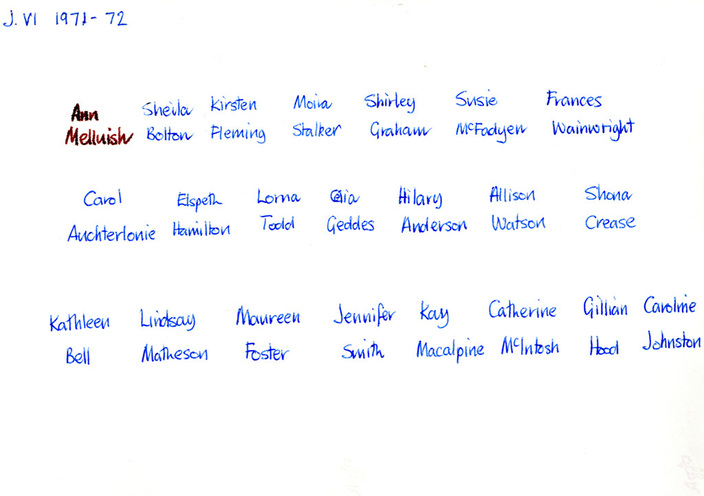 J. VI 1971-72
Ann Sheila Kirsten Moira Shirley Susie Frances
Melluish Bolton Fleming Stalker Graham McFadyen Wainwright
Carol Elspeth Lorna Gaia Hilary Allison Shona
Auchterlonie Hamilton Todd Geddes Anderson Watson Crease
Kathleen Lindsay Maureen Jennifer Kay Catherine Gillian Caroline
Bell Matheson Foster Smith Macalpine McIntosh Hood Johnston